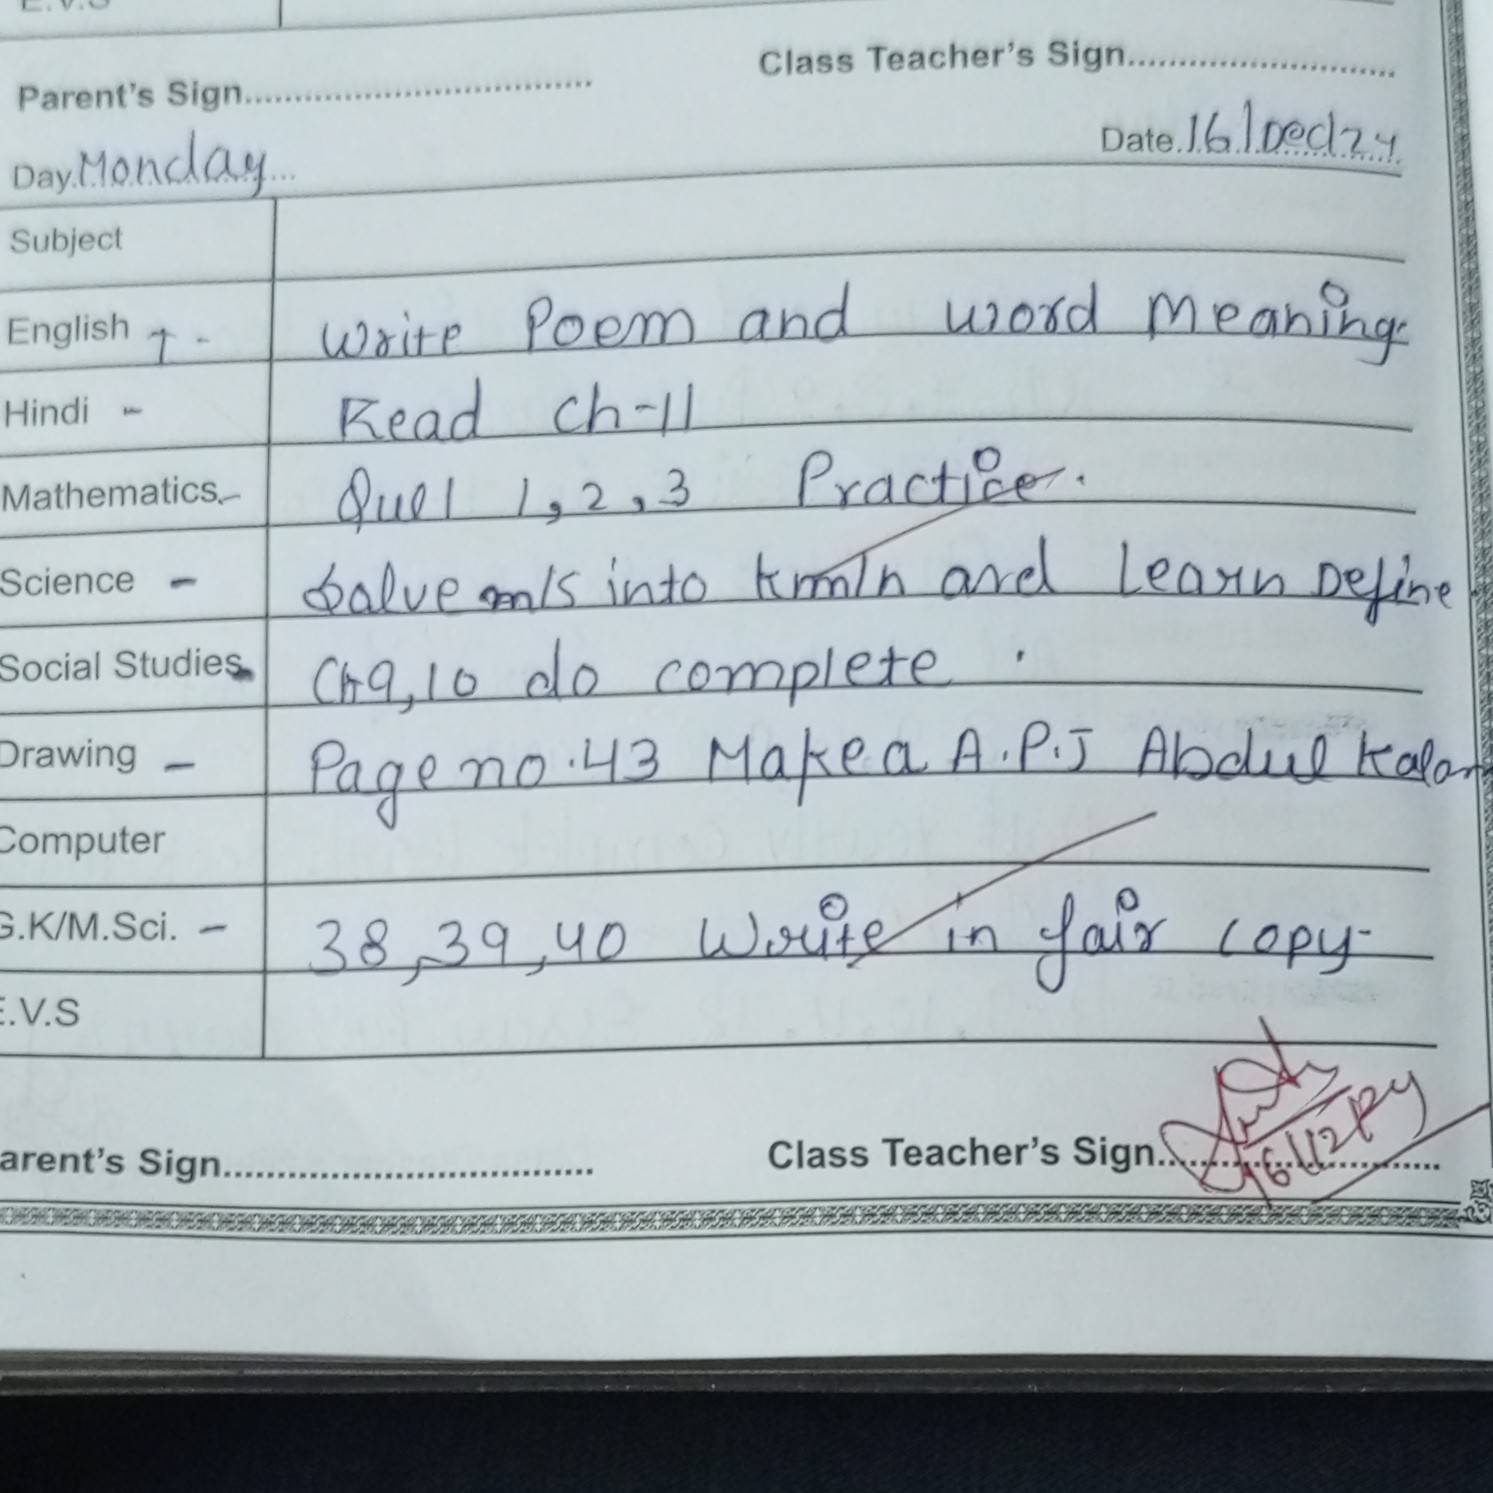 E.V.S
Class Teacher's Sign
Parent's Sign
Date 16/Dec/24
Day Monday
Subject
English - Write Poem and word Meaning
Hindi - Read Ch-11
Mathematics - Que 1 1,2,3 Practice.
Science - Salve m/s into km/h and Learn Define
Social Studies - Ch 9,10 do complete.
Drawing - Page no.43 Make a A.P.J Abdul Kalam
Computer
G.K/M.Sci. - 38,39,40 Write in fair copy
E.V.S
Parent's Sign
Class Teacher's Sign 16/12/24